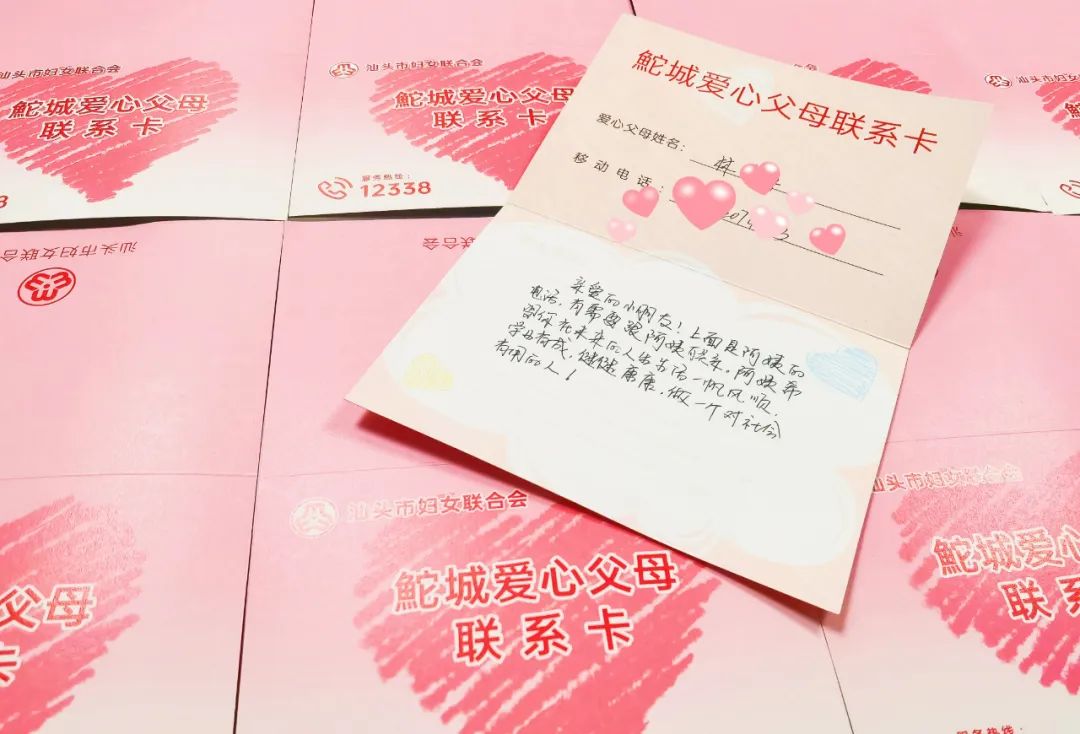 汕头市妇女联合会
鮀城爱心父母
联系卡
汕头市妇女联合会
鮀城爱心父母
联系卡
服务热线：
12338
鮀城爱心父母联系卡
爱心父母姓名：林
移动电话：
亲爱的小朋友！上面是阿姨的
电话，有需要跟阿姨联系，阿姨希
望你在未来的人生生活一帆风顺，
学业有成，健健康康，做一个对社会
有用的人！
汕头市
汕头市妇女联合会
联合会
汕头市妇女联合会
鮀城爱心父母
联系卡
父母
卡
汕头市妇女联合会
鮀城爱心
联系
服务热线：